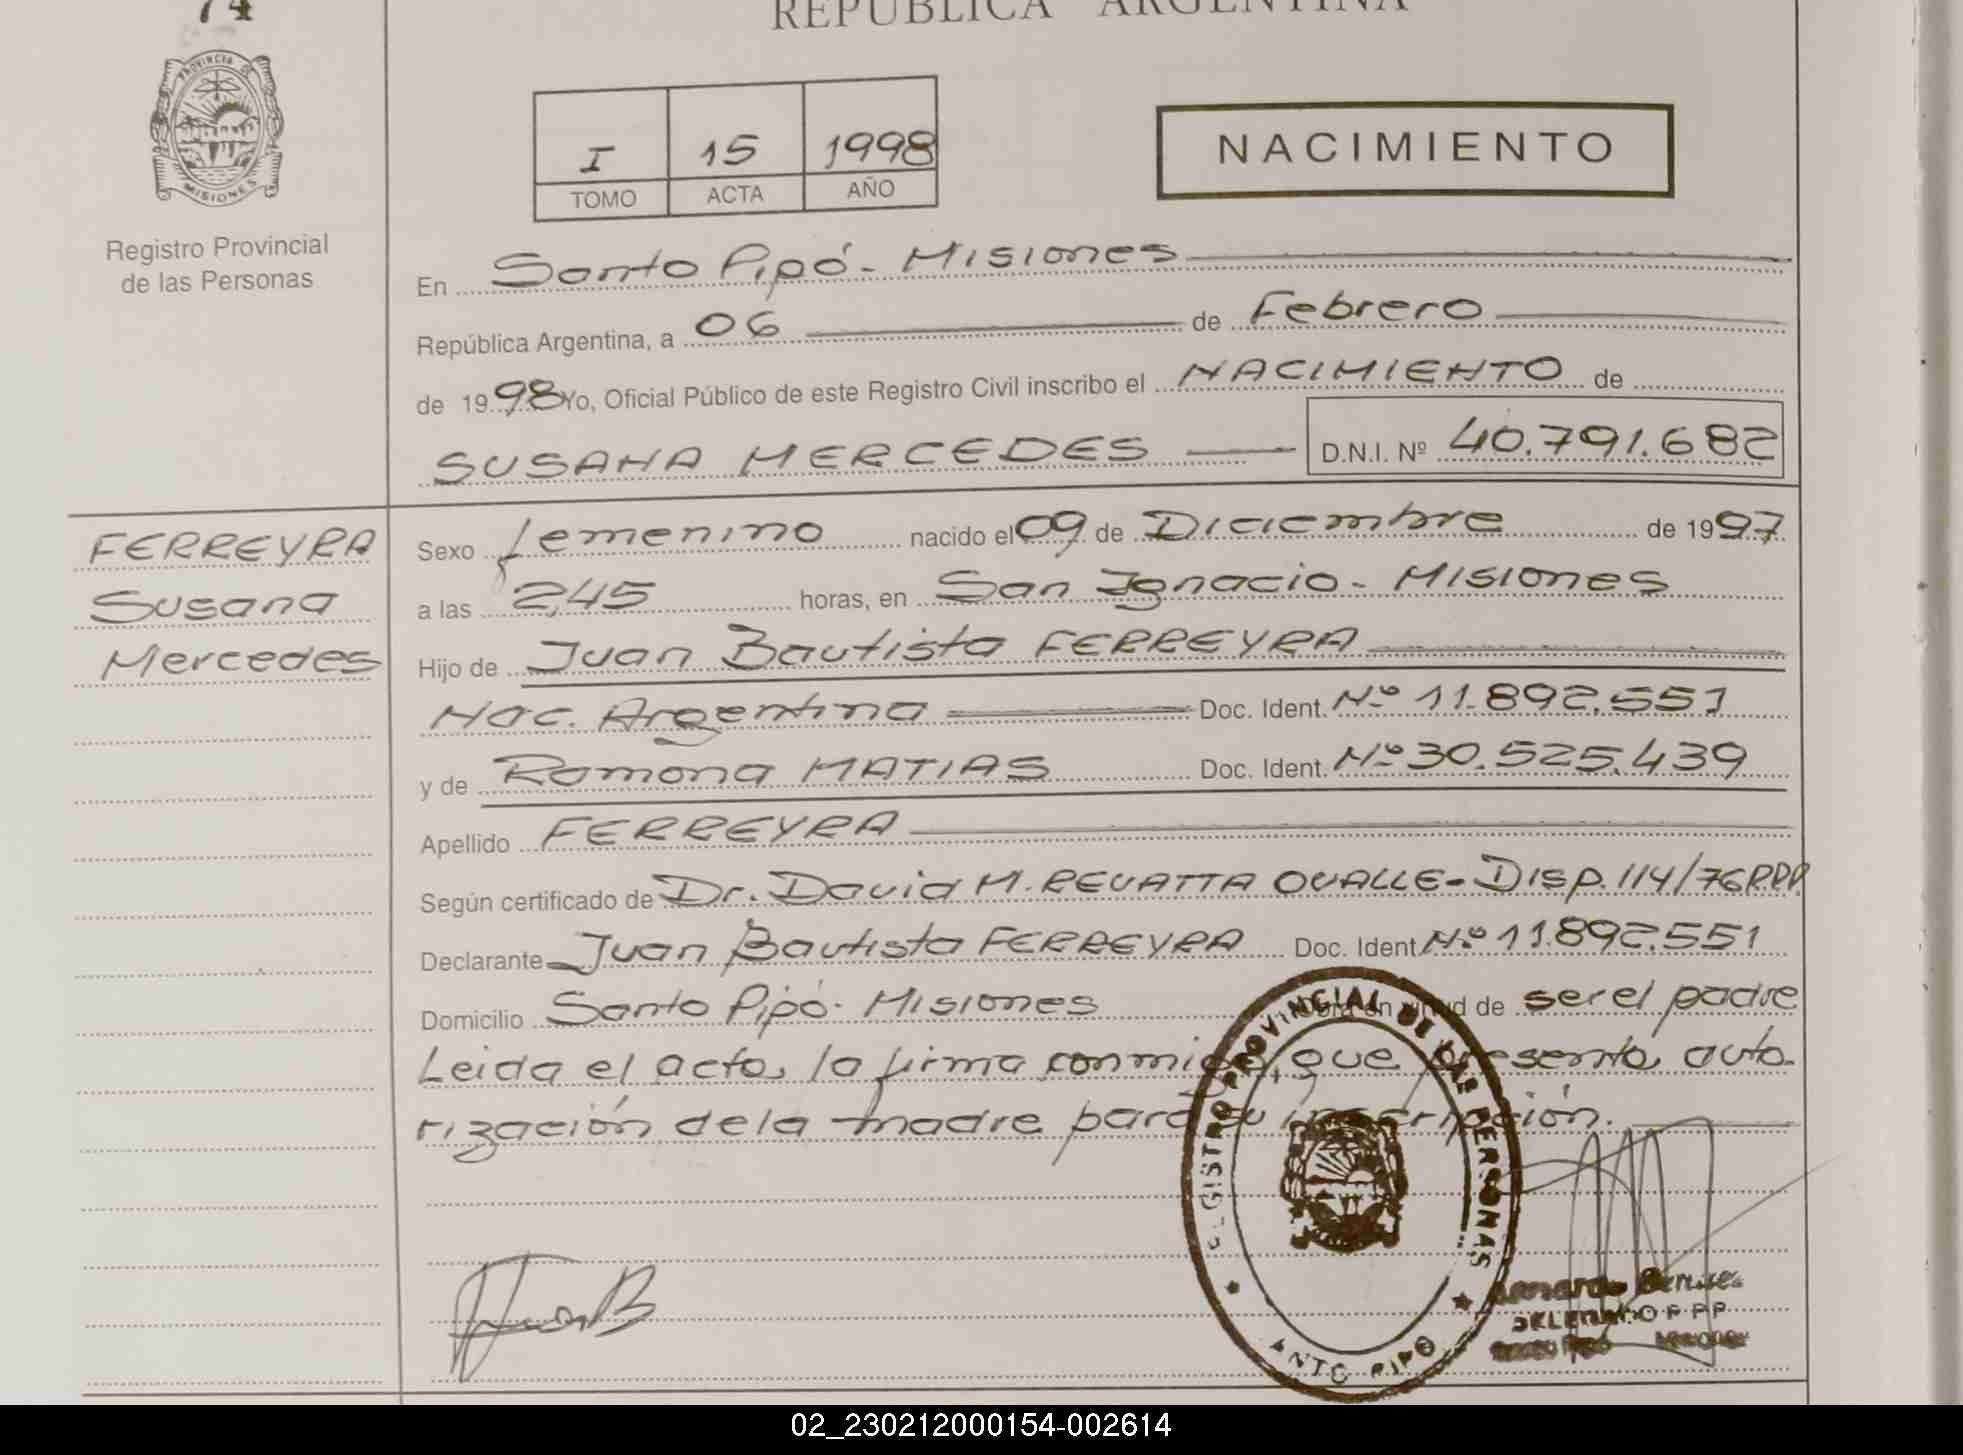 74
REPUBLICA ARGENTINA
PROVINCIA DE
MISIONES
Registro Provincial
de las Personas
I 15 1998
TOMO ACTA AÑO
NACIMIENTO
En Santo Pipó - Misiones
República Argentina, a 06 de Febrero
de 1998 Yo, Oficial Público de este Registro Civil inscribo el NACIMIENTO de
SUSANA MERCEDES D.N.I. Nº 40.791.682
FERREYRA
Susana
Mercedes
Sexo femenino nacido el 09 de Diciembre de 1997
a las 2,45 horas, en San Ignacio - Misiones
Hijo de Juan Bautista FERREYRA
Nac. Argentina Doc. Ident. Nº 11.892.551
y de Ramona MATIAS Doc. Ident. Nº 30.525.439
Apellido FERREYRA
Según certificado de Dr. David M. REVATTA OVALLE - Disp. 114/76 R.P.P.
Declarante Juan Bautista FERREYRA Doc. Ident. Nº 11.892.551
Domicilio Santo Pipó - Misiones Obra en virtud de ser el padre
Leida el acta, la firma conmigo, que presenta auto-
rización de la madre para su inscripción.
REGISTRO PROVINCIAL DE LAS PERSONAS
SANTO PIPO
Juan B
DELEGADO R P P
02_230212000154-002614